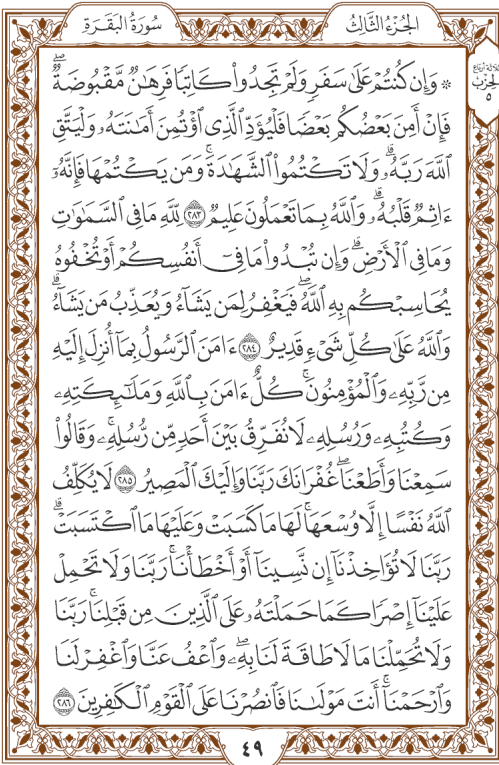 سُورَةُ البَقَرَةِ
الجُزْءُ الثَّالِثُ
ثلاثة أرباع
الحزب
٥
۞ وَإِن كُنتُمْ عَلَىٰ سَفَرٍ وَلَمْ تَجِدُوا۟ كَاتِبًا فَرِهَـٰنٌ مَّقْبُوضَةٌ ۖ
فَإِنْ أَمِنَ بَعْضُكُم بَعْضًا فَلْيُؤَدِّ ٱلَّذِى ٱؤْتُمِنَ أَمَـٰنَتَهُۥ وَلْيَتَّقِ
ٱللَّهَ رَبَّهُۥ ۗ وَلَا تَكْتُمُوا۟ ٱلشَّهَـٰدَةَ ۚ وَمَن يَكْتُمْهَا فَإِنَّهُۥٓ
ءَاثِمٌ قَلْبُهُۥ ۗ وَٱللَّهُ بِمَا تَعْمَلُونَ عَلِيمٌ ٢٨٣ لِّلَّهِ مَا فِى ٱلسَّمَـٰوَٰتِ
وَمَا فِى ٱلْأَرْضِ ۗ وَإِن تُبْدُوا۟ مَا فِىٓ أَنفُسِكُمْ أَوْ تُخْفُوهُ
يُحَاسِبْكُم بِهِ ٱللَّهُ ۖ فَيَغْفِرُ لِمَن يَشَآءُ وَيُعَذِّبُ مَن يَشَآءُ ۗ
وَٱللَّهُ عَلَىٰ كُلِّ شَىْءٍ قَدِيرٌ ٢٨٤ ءَامَنَ ٱلرَّسُولُ بِمَآ أُنزِلَ إِلَيْهِ
مِن رَّبِّهِۦ وَٱلْمُؤْمِنُونَ ۚ كُلٌّ ءَامَنَ بِٱللَّهِ وَمَلَـٰٓئِكَتِهِۦ
وَكُتُبِهِۦ وَرُسُلِهِۦ لَا نُفَرِّقُ بَيْنَ أَحَدٍ مِّن رُّسُلِهِۦ ۚ وَقَالُوا۟
سَمِعْنَا وَأَطَعْنَا ۖ غُفْرَانَكَ رَبَّنَا وَإِلَيْكَ ٱلْمَصِيرُ ٢٨٥ لَا يُكَلِّفُ
ٱللَّهُ نَفْسًا إِلَّا وُسْعَهَا ۚ لَهَا مَا كَسَبَتْ وَعَلَيْهَا مَا ٱكْتَسَبَتْ ۗ
رَبَّنَا لَا تُؤَاخِذْنَآ إِن نَّسِينَآ أَوْ أَخْطَأْنَا ۚ رَبَّنَا وَلَا تَحْمِلْ
عَلَيْنَآ إِصْرًا كَمَا حَمَلْتَهُۥ عَلَى ٱلَّذِينَ مِن قَبْلِنَا ۚ رَبَّنَا
وَلَا تُحَمِّلْنَا مَا لَا طَاقَةَ لَنَا بِهِۦ ۖ وَٱعْفُ عَنَّا وَٱغْفِرْ لَنَا
وَٱرْحَمْنَآ ۚ أَنتَ مَوْلَىٰنَا فَٱنصُرْنَا عَلَى ٱلْقَوْمِ ٱلْكَـٰفِرِينَ ٢٨٦
٤٩